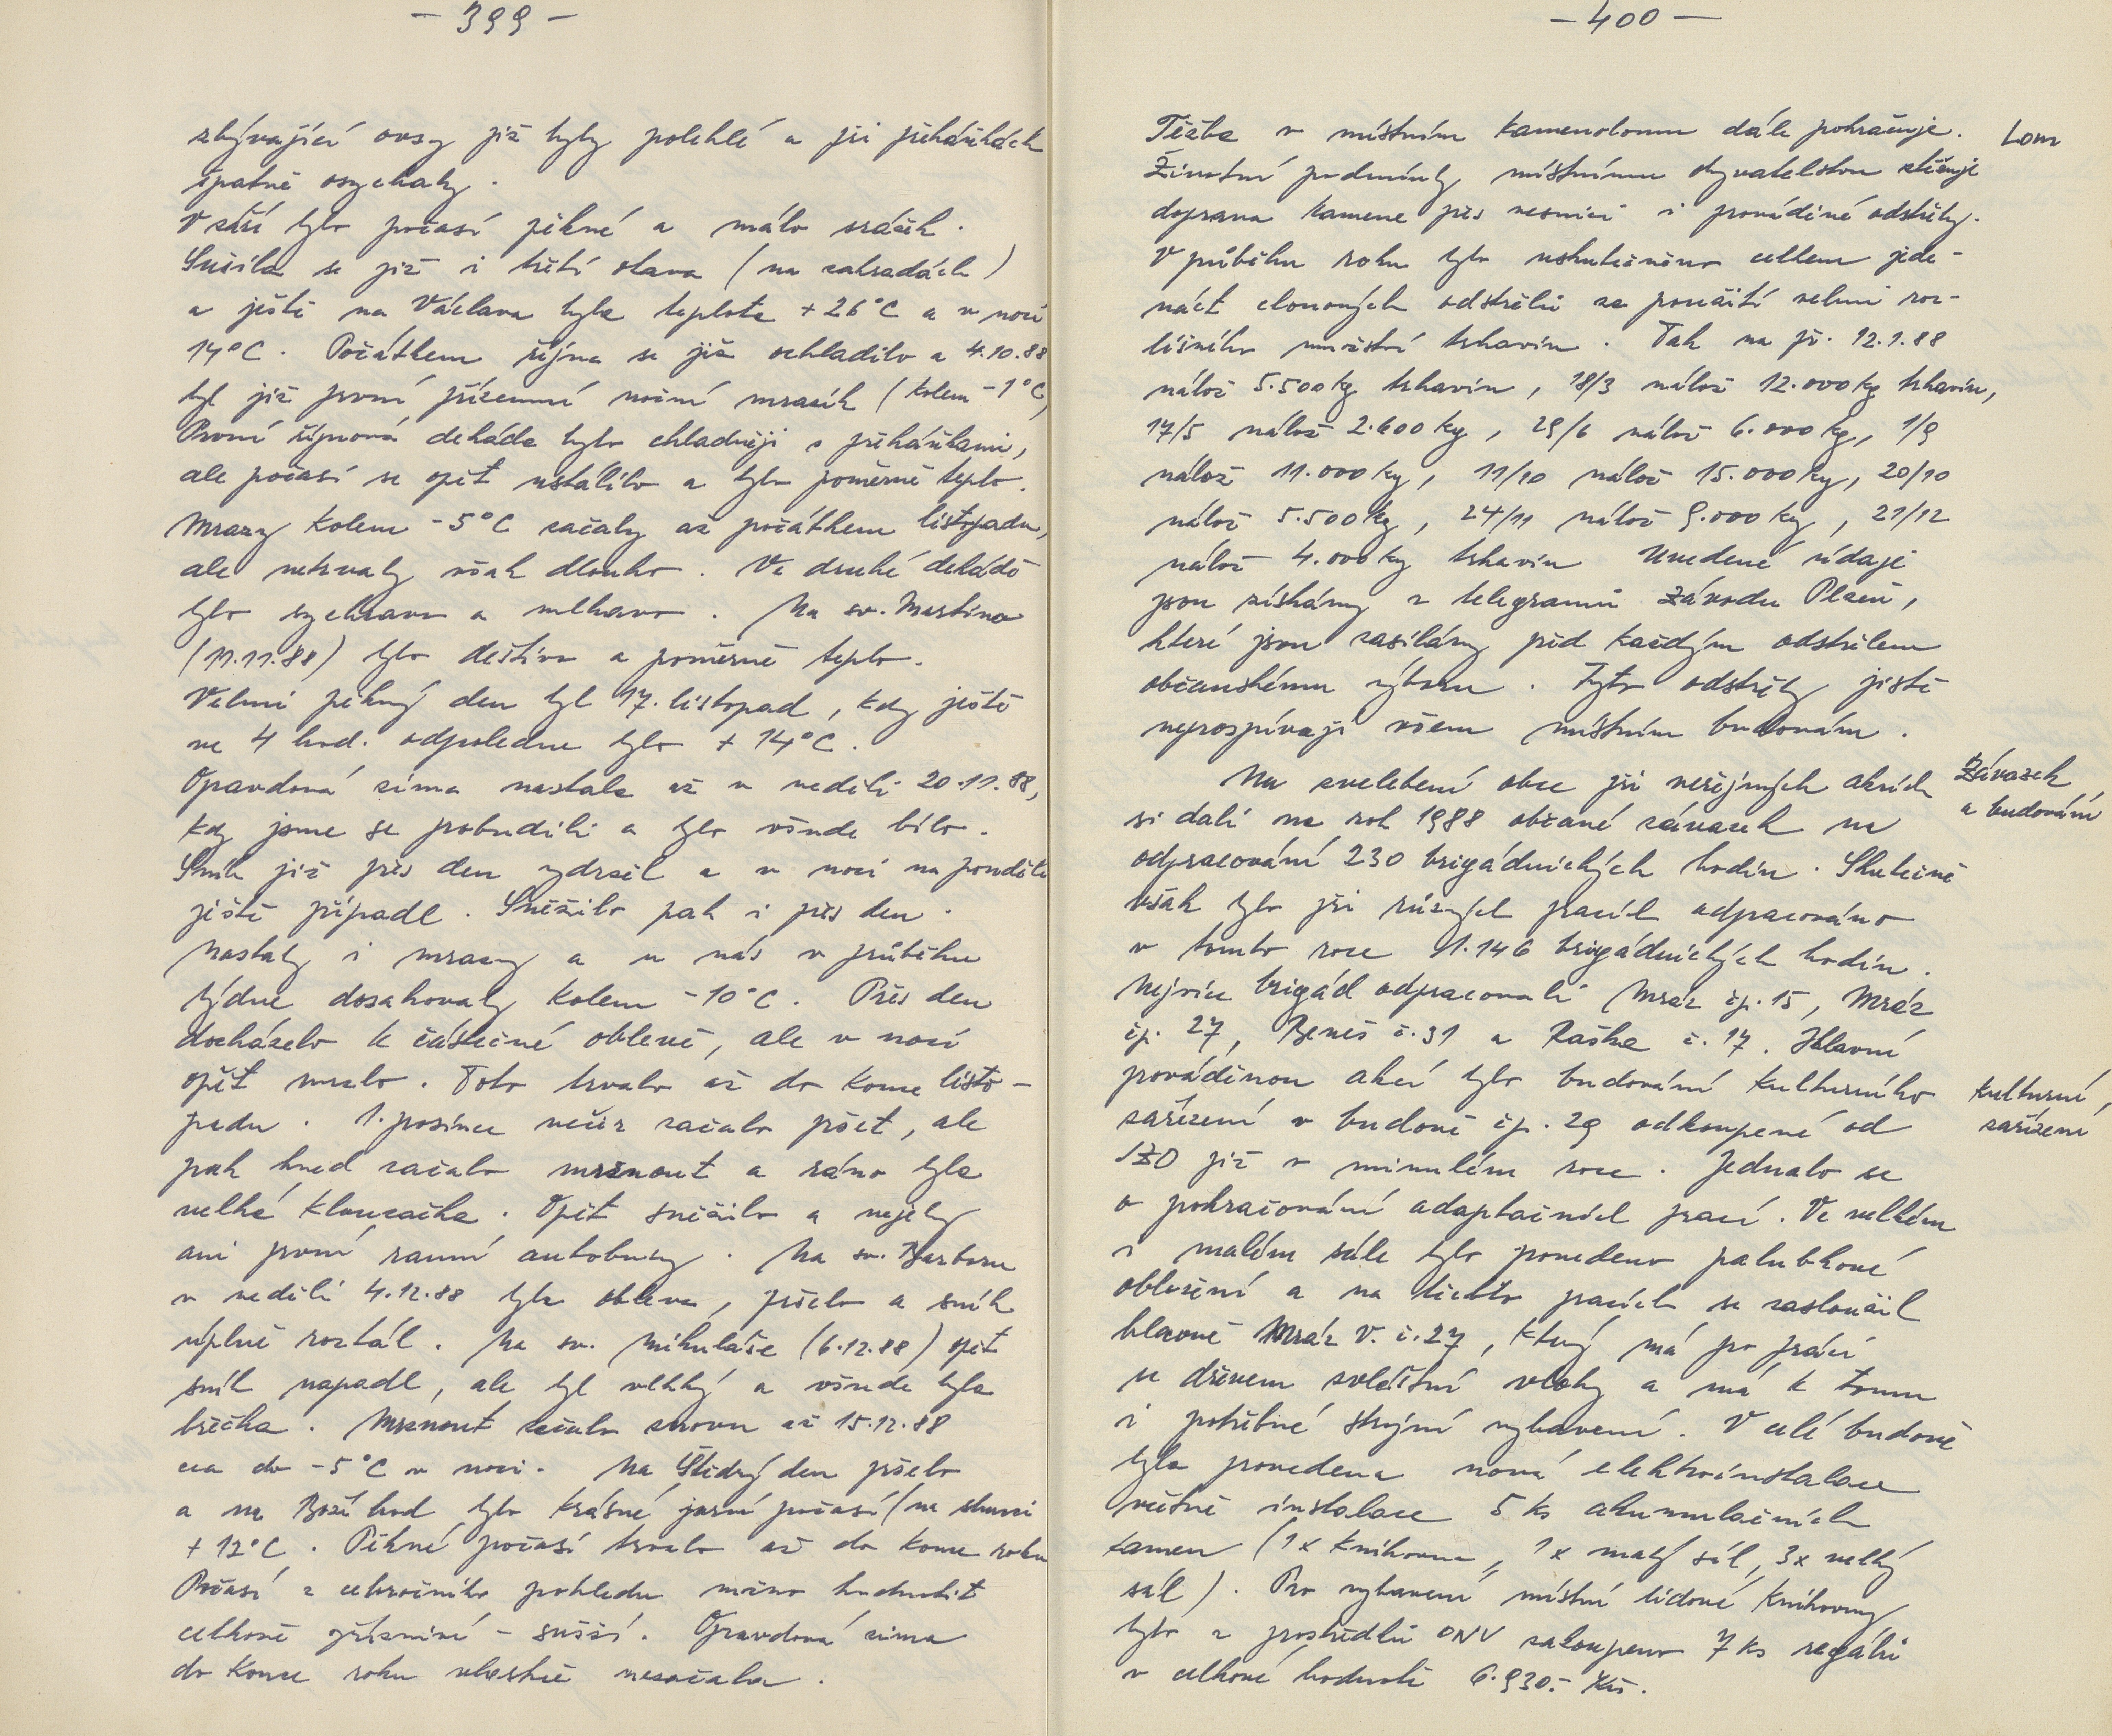 - 399 -
zbývající ovsy již byly polehlé a při přeháňkách
špatně osychaly.
V září bylo počasí pěkné a málo srážek.
Sušila se již i třetí otava (na zahradách)
a ještě na Václava byla teplota +26°C a v noci
14°C. Počátkem října se již ochladilo a 4.10.88
byl již první přízemní noční mrazík (kolem -1°C)
První říjnová dekáda byla chladnější s přeháňkami,
ale počasí se opět ustálilo a bylo poměrně teplo.
Mrazy kolem -5°C začaly až počátkem listopadu,
ale netrvaly však dlouho. Ve druhé dekádě
bylo sychravo a mlhavo. Na sv. Martina
(11.11.88) bylo deštivo a poměrně teplo.
Velmi pěkný den byl 17. listopad, kdy ještě
ve 4 hod. odpoledne bylo +14°C.
Opravdová zima nastala až v neděli 20.11.88,
kdy jsme se probudili a bylo všude bílo.
Sníh již přes den vydržel a v noci na pondělí
ještě připadl. Sněžilo pak i přes den.
Nastaly i mrazy a u nás v průběhu
týdne dosahovaly kolem -10°C. Přes den
docházelo k částečné oblevě, ale v noci
opět mrzlo. Toto trvalo až do konce listo-
padu. 1. prosince večer začalo pršet, ale
pak hned začalo mrznout a ráno byla
velká klouzačka. Opět sněžilo a nejely
ani první ranní autobusy. Na sv. Barboru
v neděli 4.12.88 byla obleva, pršelo a sníh
úplně roztál. Na sv. Mikuláše (6.12.88) opět
sníh napadl, ale byl vlhký a všude byla
břečka. Mrznout začalo znovu až 15.12.88
cca do -5°C v noci. Na Štědrý den pršelo
a na Boží hod bylo krásné jarní počasí (na slunci
+12°C. Pěkné počasí trvalo až do konce roku
Počasí z celoročního pohledu možno hodnotit
celkově příznivé - sušší. Opravdová zima
do konce roku vlastně nezačala.
- 400 -
Těžba v místním kamenolomu dále pokračuje.
Lom
Životní podmínky místnímu obyvatelstvu ztěžuje
doprava kamene přes vesnici i prováděné odstřely.
V průběhu roku bylo uskutečněno celkem jede-
náct clonových odstřelů za použití velmi roz-
ličného množství trhavin. Tak na př. 12.1.88
nálož 5.500 kg trhavin, 18/3 nálož 12.000 kg trhavin,
17/5 nálož 2.600 kg, 29/6 nálož 6.000 kg, 1/9
nálož 11.000 kg, 11/10 nálož 15.000 kg, 20/10
nálož 5.500 kg, 24/11 nálož 9.000 kg, 21/12
nálož 4.000 kg trhavin Uvedené údaje
jsou získány z telegramů Závodu Plzeň,
které jsou zasílány před každým odstřelem
občanskému výboru. Tyto odstřely jistě
neprospívají všem místním budovám.
Na zvelebení obce při veřejných akcích
Závazek
a budování
si dali na rok 1988 občané závazek na
odpracování 230 brigádnických hodin. Skutečně
však bylo při různých pracích odpracováno
v tomto roce 1.146 brigádnických hodin.
Nejvíce brigád odpracovali Mráz čp. 15, Mráz
čp. 27, Beneš č. 31 a Raška č. 17. Hlavní
prováděnou akcí bylo budování kulturního
kulturní
zařízení
zařízení v budově čp. 29 odkoupené od
JZD již v minulém roce. Jednalo se
o pokračování adaptačních prací. Ve velkém
i malém sále bylo provedeno palubkové
obložení a na těchto pracích se zasloužil
hlavně Mráz V. č. 27, který má pro práci
se dřevem zvláštní vlohy a má k tomu
i potřebné strojní vybavení. V celé budově
byla provedena nová elektroinstalace
včetně instalace 5 ks akumulačních
kamen (1x knihovna, 1x malý sál, 3x velký
sál). Pro vybavení místní lidové knihovny
bylo z prostředků ONV zakoupeno 7 ks regálů
v celkové hodnotě 6.930.- Kčs.